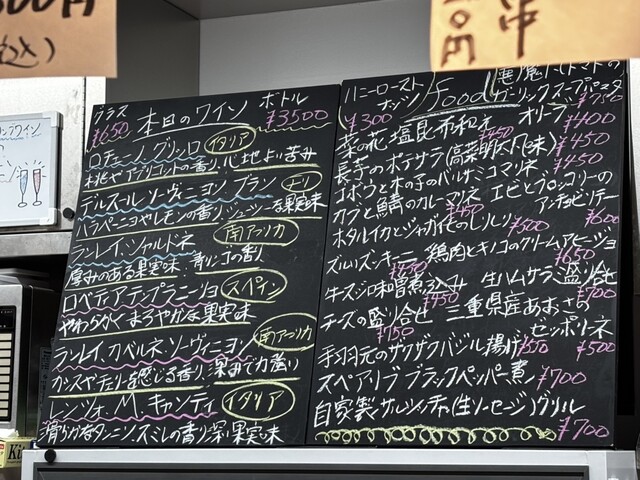 00円
(税込)
串
0円
グラス 本日のワイン ボトル
¥650 ¥3500
ロチェーノ グリッロ イタリア
桃やアプリコットの香り、心地よい苦み
デルスール ソーヴィニヨン ブラン チリ
ハラペーニョやレモンの香り、ジューシーな果実味
ランレイ シャルドネ 南アフリカ
厚みのある果実味 青リンゴの香り
ロペテア テンプラニーリョ スペイン
やわらかくまろやかな果実味
ランレイ カベルネ ソーヴィニヨン 南アフリカ
カシスやチェリーを感じる香り 深みで力強い
レンツォ.M.キャンティ イタリア
滑らかなタンニン、スミレの香り 深い果実味
ハニーロースト ナッツ ¥300
Food
悪魔のトマトの ガーリックスープパスタ ¥750
菜の花 塩昆布和え ¥450 オリーブ ¥400
長芋のポテサラ(高菜明太風味) ¥450
ゴボウと木の子のバルサミコマリネ ¥450
カブと鯖のカレーマリネ ¥450 エビとブロッコリーの アンチョビソテー ¥600
ホタルイカとジャガイモのしりしり ¥500
ズルいズッキーニ ¥450 鶏肉とキノコのクリームアヒージョ ¥650
牛スジ味噌煮込み ¥450 生ハムサラミ盛合せ ¥700
チーズの盛り合せ ¥750 三重県産あおさの ゼッポリーネ ¥500
手羽元のザクザクバジル揚げ ¥550
スペアリブ ブラックペッパー煮 ¥700
自家製サルシッチャ(生ソーセージ)グリル ¥700
Ki